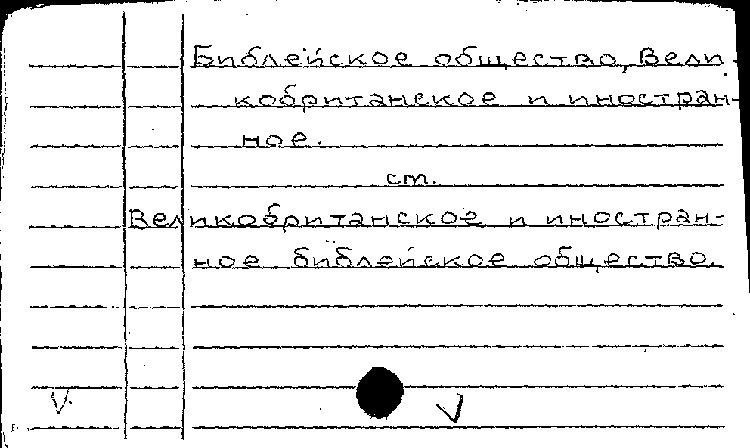 Библейское общество, Вели-
кобританское и иностран-
ное.
ст.
Великобританское и иностран-
ное библейское общество.